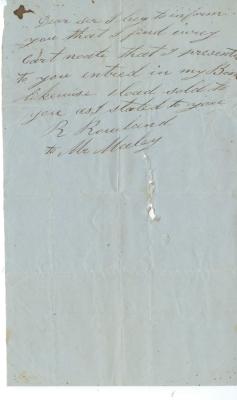 Dear ser I beg to inform
you that I find every
Cart noate that I presented
to you entred in my Book
likewise load sold to
you as I stated to you
R Rowland
to Mr Meeley